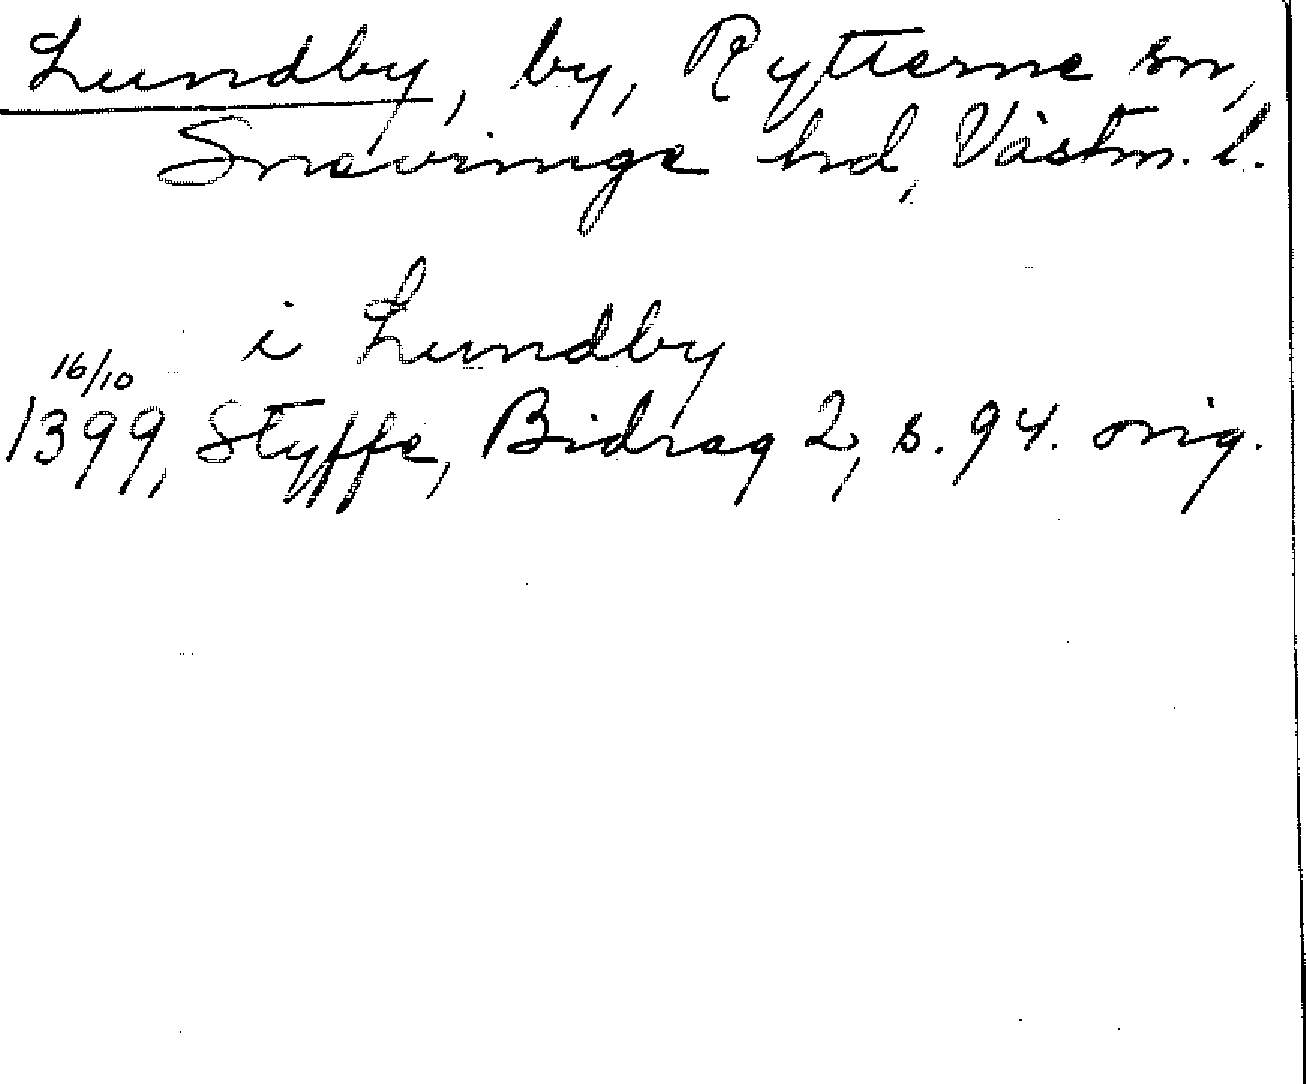 Lundby, by, Rytterne sn,
Snevringe hd, Västm. l.
i Lundby
16/10
1399, Styffe, Bidrag 2, s. 94. orig.